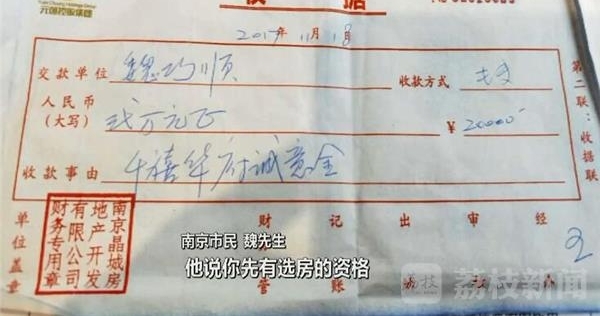 元朝控股集团
收 据
2017年11月18
交款单位 魏巧顺 收款方式
人民币(大写) 贰万元正 ¥ 20000
收款事由 千禧华府诚意金
第二联：收据联
单位盖章
南京晶城房地产开发有限公司财务专用章
财 记 出 审 经
管 账
南京市民 魏先生
他说你先有选房的资格
荔枝新闻